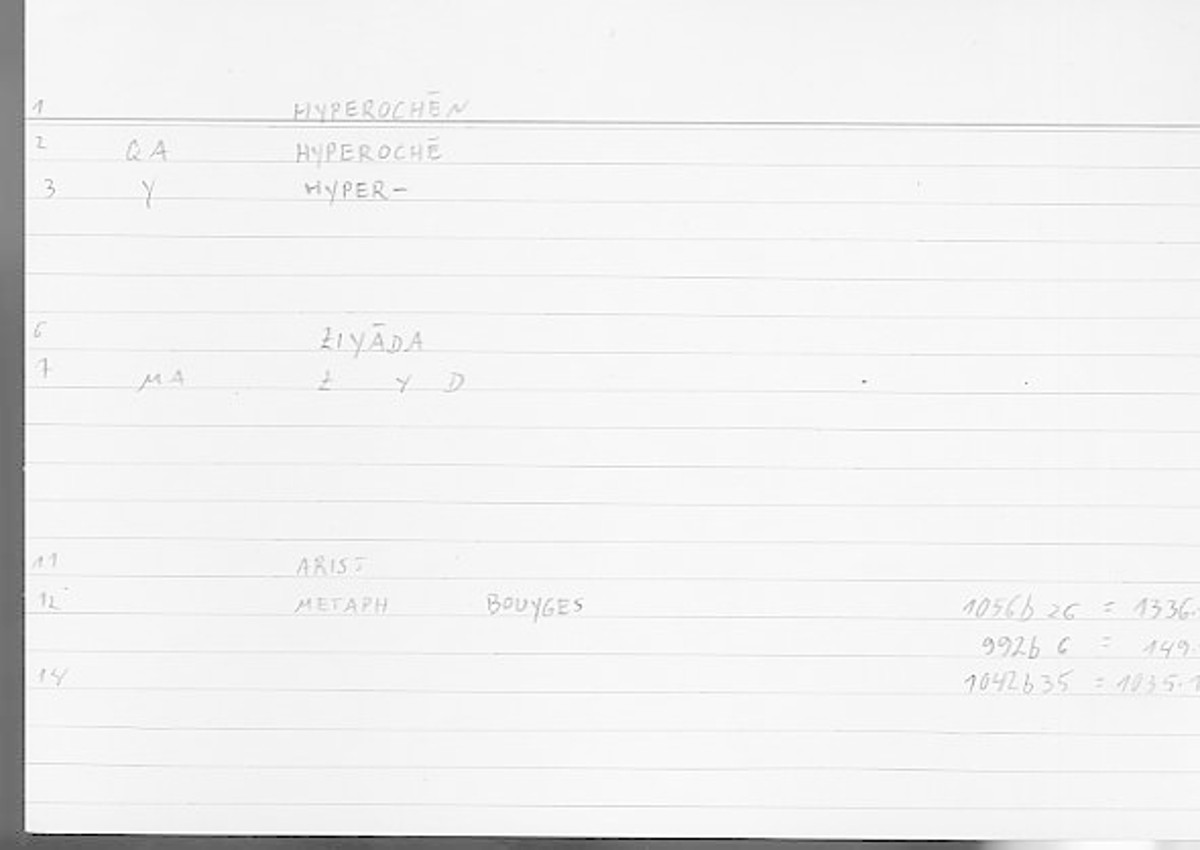 1 HYPEROCHĒN
2 QA HYPEROCHĒ
3 Y HYPER-
6 ZIYĀDA
7 MA Z Y D
11 ARIST
12 METAPH BOUYGES 1056b 26 = 1336.
992b 6 = 149.
14 1042b35 = 1035.1